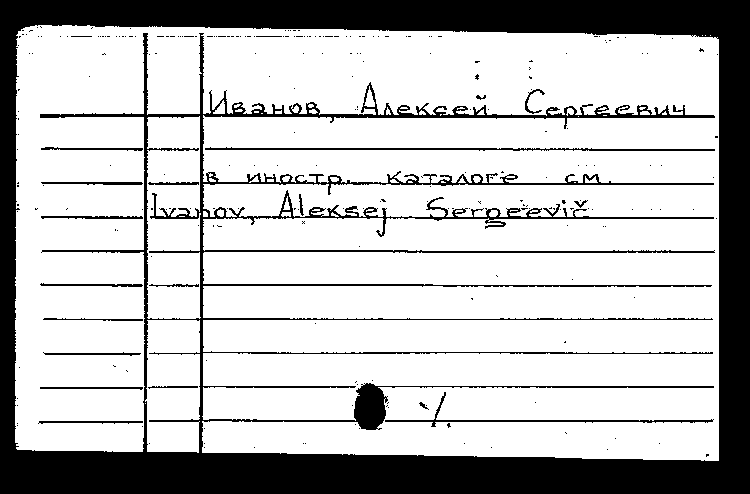 Иванов, Алексей Сергеевич
в иностр. каталоге см.
Ivanov, Aleksej Sergeevič